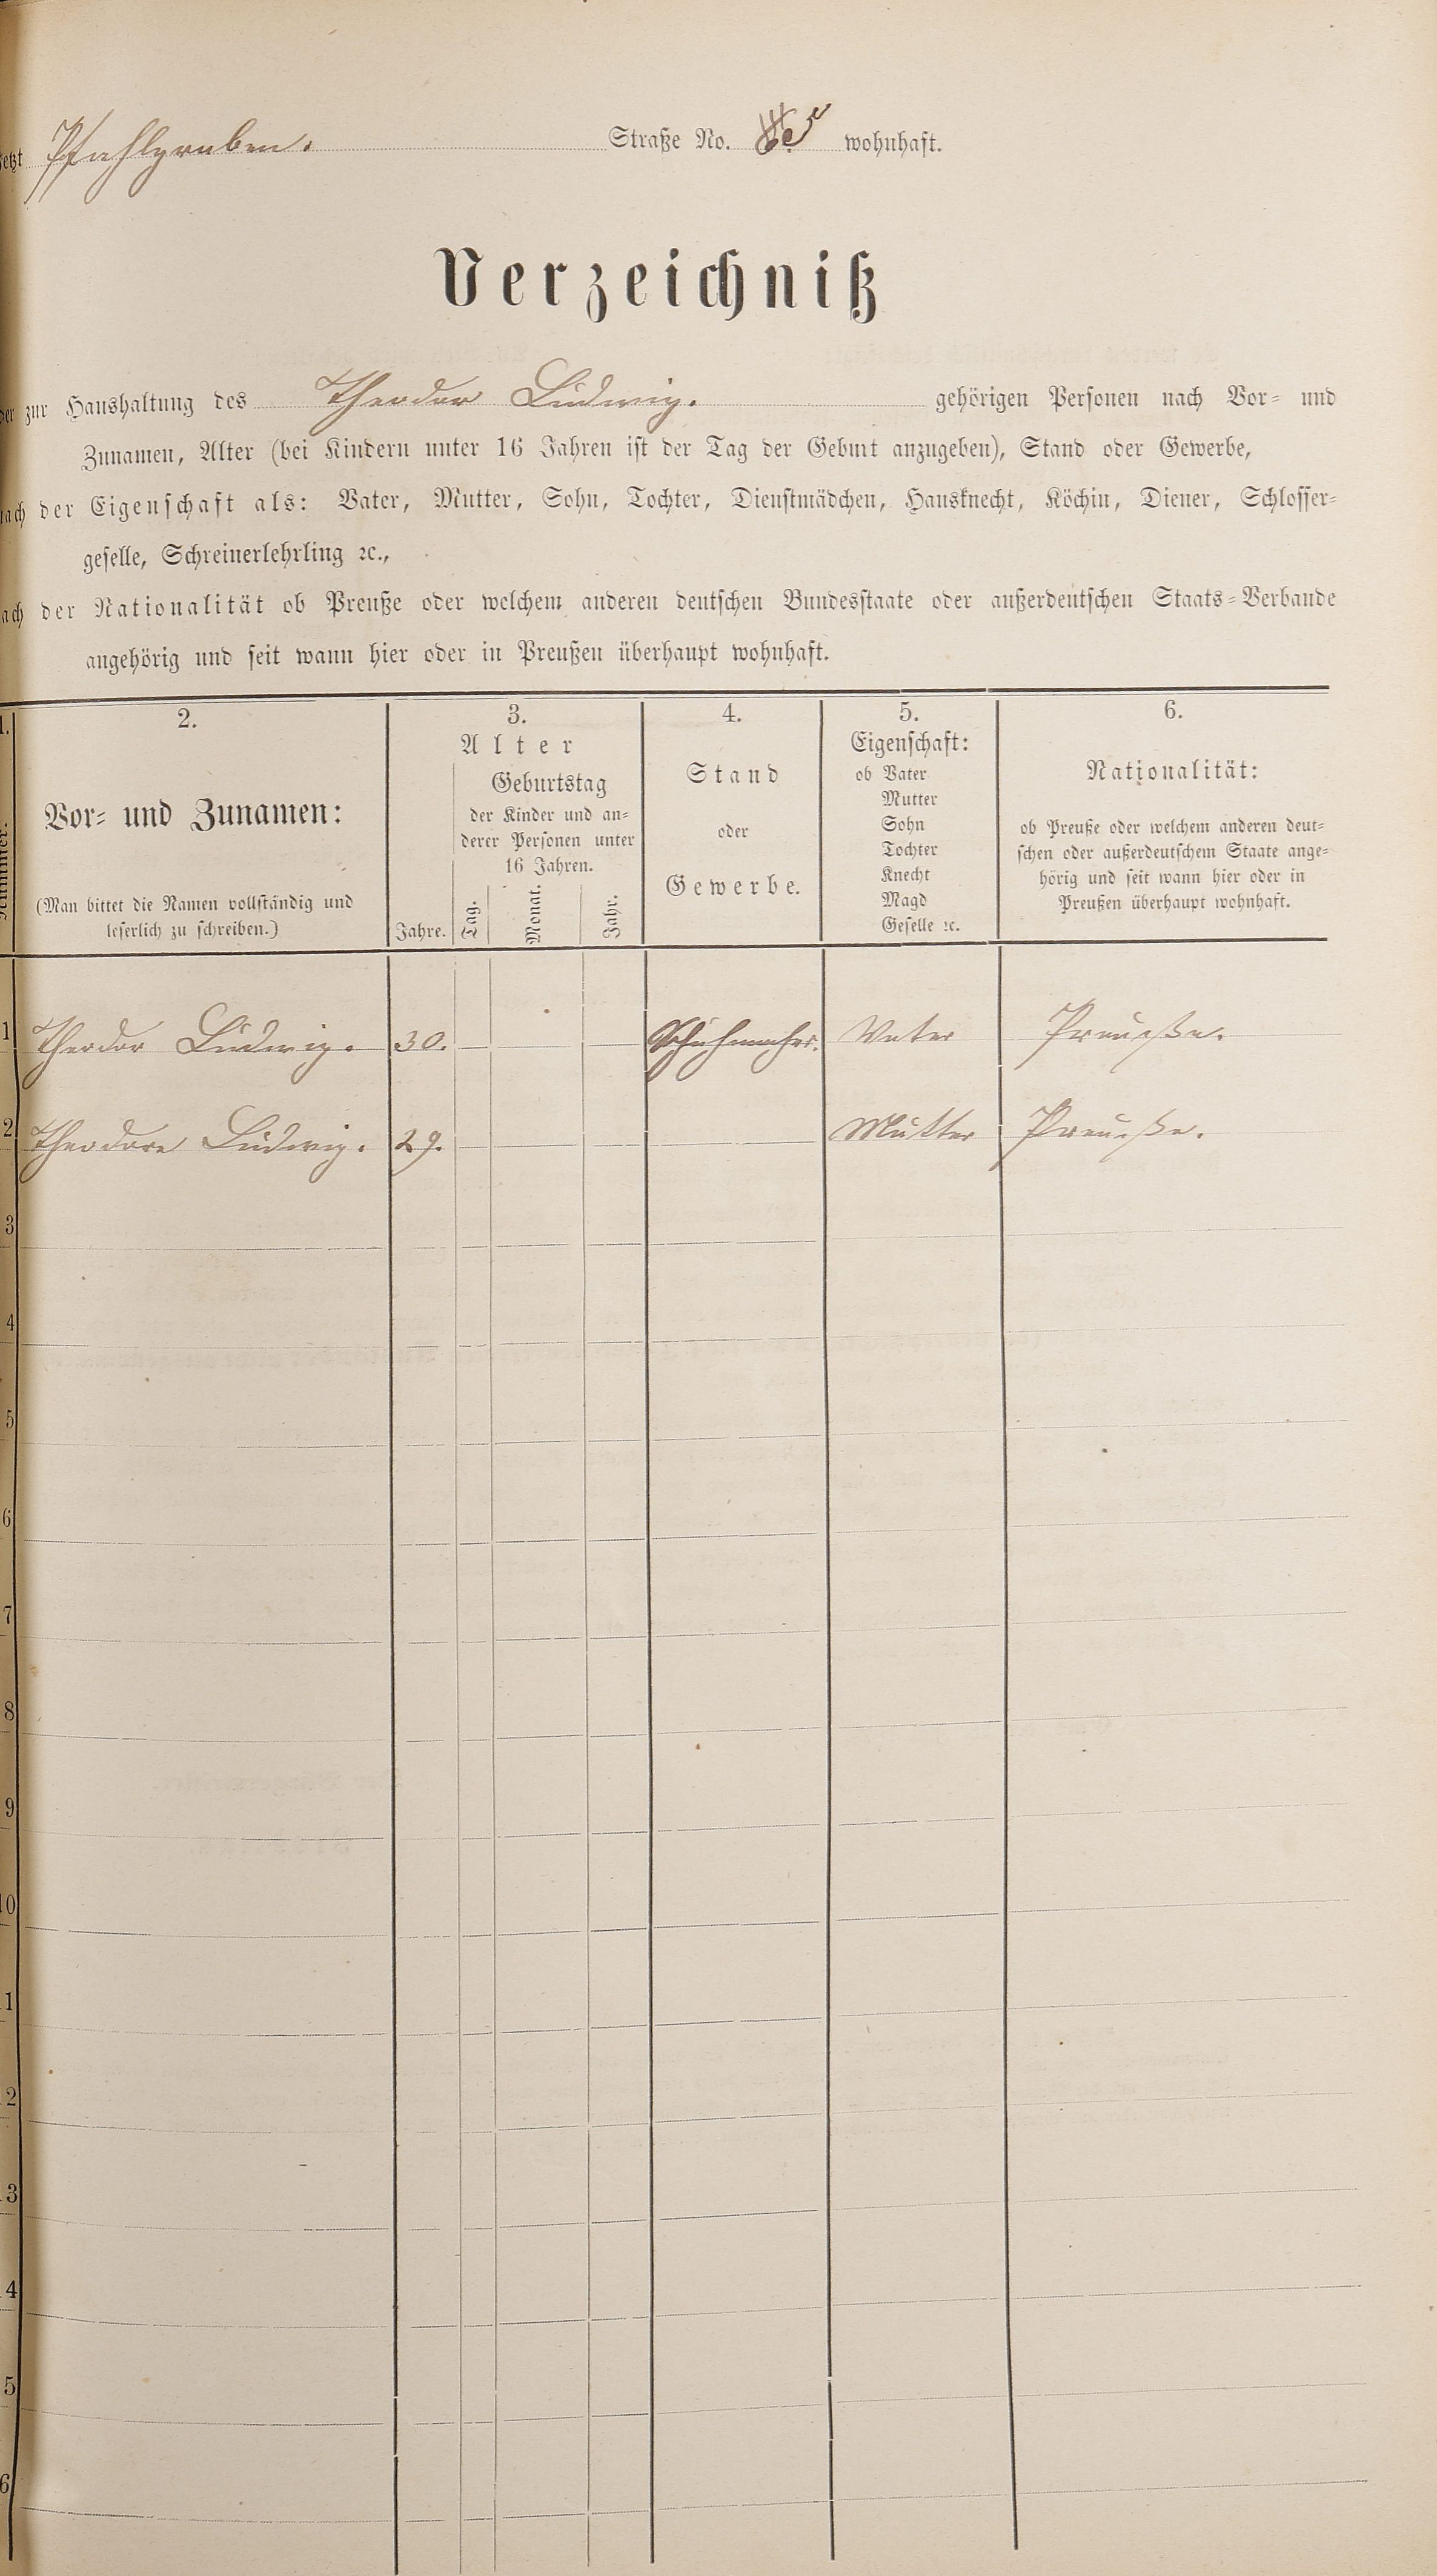 jetzt Pfahlgraben. Straße No. wohnhaft.
Verzeichniß
der zur Haushaltung des Theodor Ludwig. gehörigen Personen nach Vor- und
Zunamen, Alter (bei Kindern unter 16 Jahren ist der Tag der Geburt anzugeben), Stand oder Gewerbe,
nach der Eigenschaft als: Vater, Mutter, Sohn, Tochter, Dienstmädchen, Hausknecht, Köchin, Diener, Schlosser-
geselle, Schreinerlehrling ꝛc.,
nach der Nationalität ob Preuße oder welchem anderen deutschen Bundesstaate oder außerdeutschen Staats-Verbande
angehörig und seit wann hier oder in Preußen überhaupt wohnhaft.
1. 2. 3. 4. 5. 6.
Nummer.
Vor- und Zunamen:
(Man bittet die Namen vollständig und
leserlich zu schreiben.)
Alter
Jahre.
Geburtstag
der Kinder und an-
derer Personen unter
16 Jahren.
Tag. Monat. Jahr.
Stand
oder
Gewerbe.
Eigenschaft:
ob Vater
Mutter
Sohn
Tochter
Knecht
Magd
Geselle ꝛc.
Nationalität:
ob Preuße oder welchem anderen deut-
schen oder außerdeutschem Staate ange-
hörig und seit wann hier oder in
Preußen überhaupt wohnhaft.
1 Theodor Ludwig. 30. Schuhmacher. Vater Preuße.
2 Theodore Ludwig. 29. Mutter Preuße.
3
4
5
6
7
8
9
10
1
2
3
4
5
6